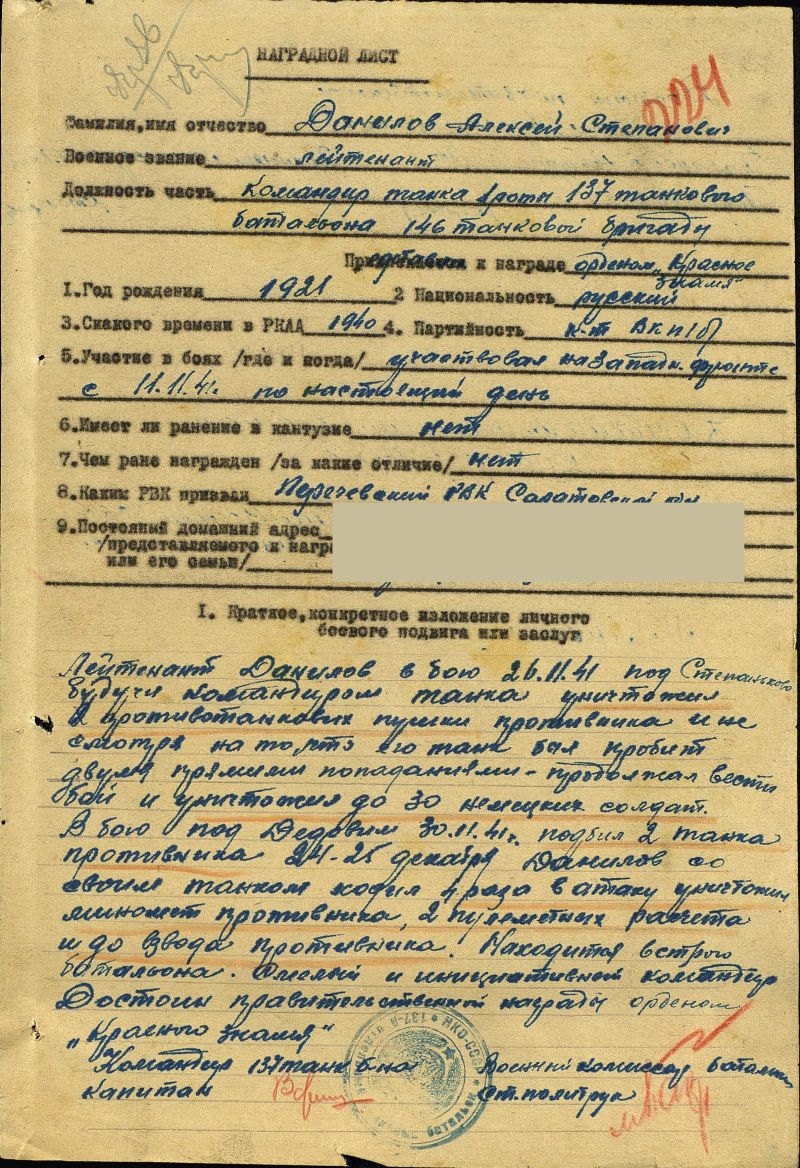 НАГРАДНОЙ ЛИСТ
Фамилия,имя отчество Данилов Алексей Степанович
Военное звание лейтенант
Должность часть Командир танка роты 137 танкового
батальона 146 танковой бригады
к награде орденом „Красное
знамя"
1.Год рождения 1921 2 Национальность русский
3.Скакого времени в РККА 1940 4. Партийность к-т ВКП/б
5.Участие в боях /где и когда/ участвовал на Западн. фронте
с 11.11.41. по настоящий день
6.Имеет ли ранение и кантузие нет
7.Чем ране награжден /за какие отличие/ нет
8.Каким РВК призван РВК
9.Постоянный домашний адрес
/представляемого к
или его семьи/
I. Краткое,конкретное изложение личного
боевого подвига или заслуг
Лейтенант Данилов в бою 26.11.41 под Степаньково
Будучи командиром танка уничтожил
2 противотанковых пушки противника и не
смотря на то, что его танк был пробит
двумя прямыми попаданиями - продолжал вести
бой и уничтожил до 30 немецких солдат.
В бою под Дедовим 30.11.41г. подбил 2 танка
противника 24-25 декабря Данилов со
своим танком ходил 4 раза в атаку уничтожил
миномет противника, 2 пулеметних расчета
и до взвода противника. Находится встрою
батальона. Смелый и инициативней командир
Достоин правительственной награды орденом
„Красного знамя"
Командир 137 танк б-на Военний комиссар баталион
капитан ст. политрук